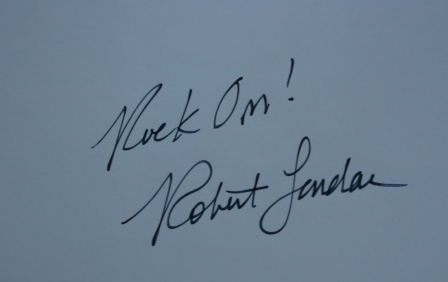 Rock On!
Robert Landau